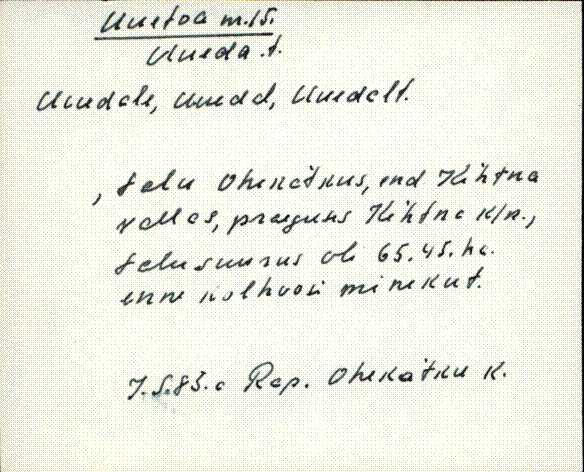 Uuetoa m.15.
Uueda t.
Uuedale, Uuedal, Uuedalt.
, talu Ohekatkus, end Kehtna
vallas, praegune Kehtna k/n.,
talu suurus oli 65.45. ha.
enne kolhoosi minekut.
7.5.83.a Rap. Ohekatku k.